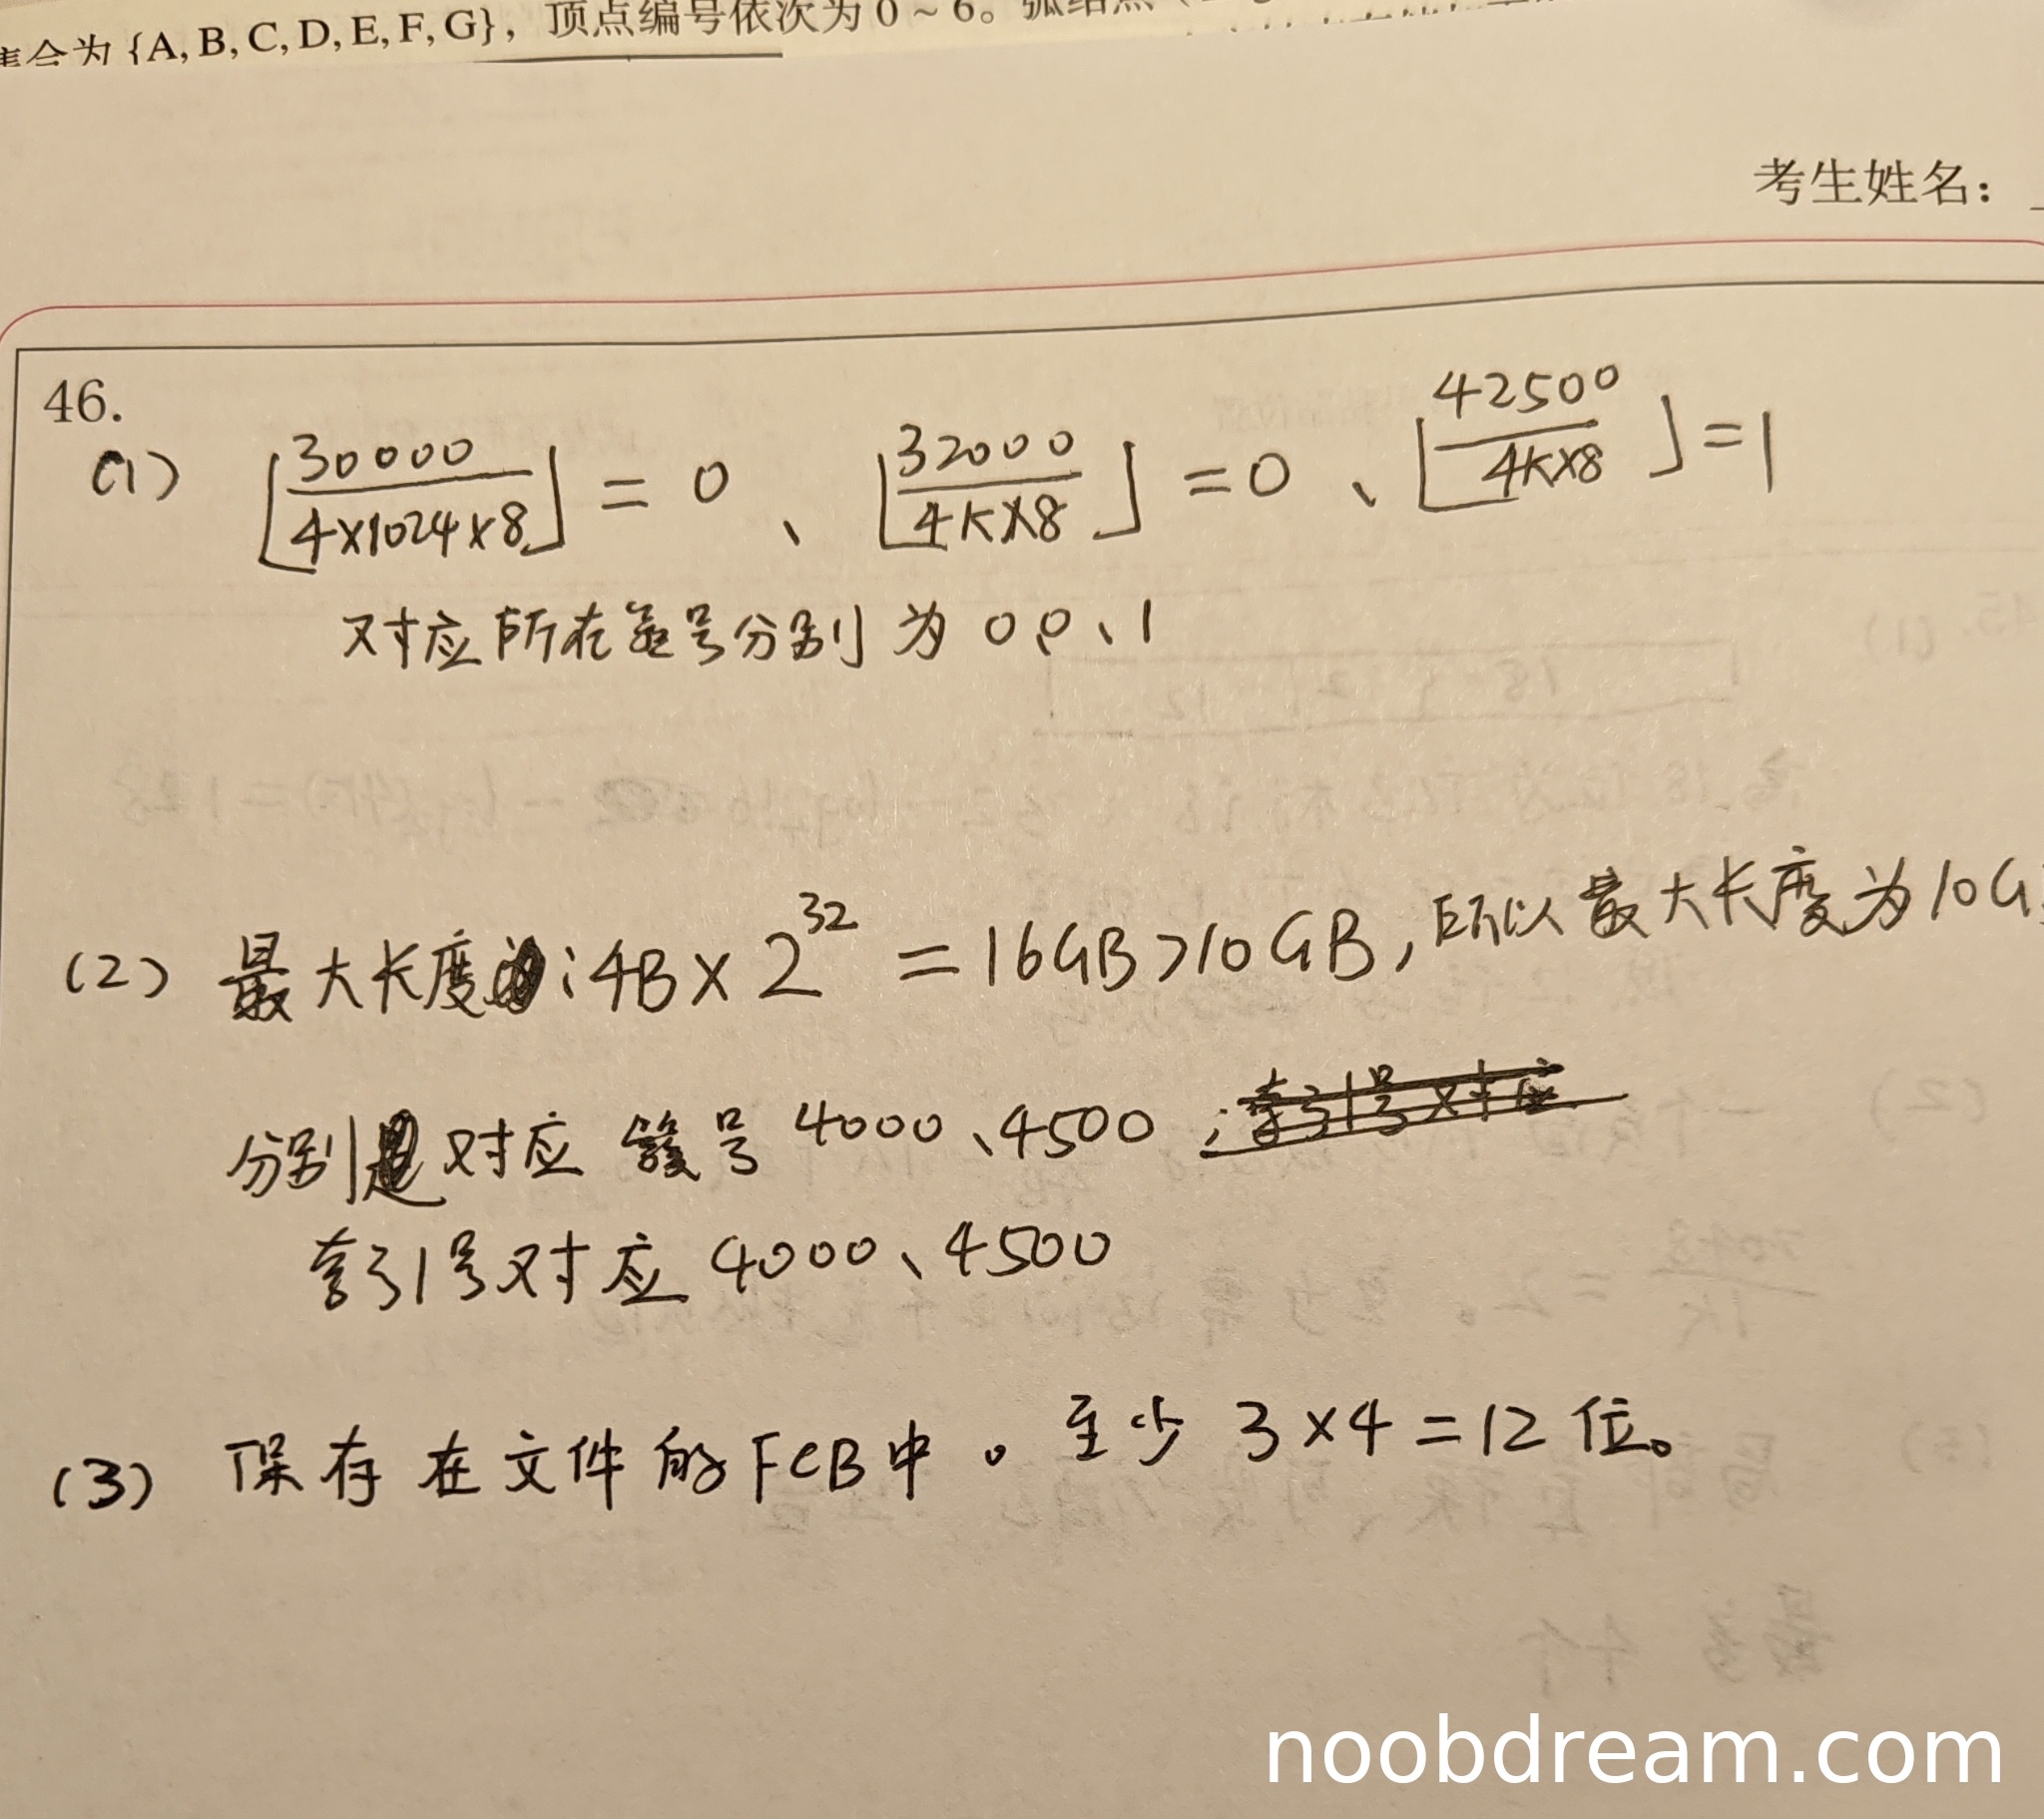 集合为 {A, B, C, D, E, F, G}，顶点编号依次为 0 ~ 6。弧结点
考生姓名：
46.
(1) ⌊30000/(4×1024×8)⌋ = 0 、 ⌊32000/(4K×8)⌋ = 0 、 ⌊42500/(4K×8)⌋ = 1
对应所在簇号分别为 0、0、1
(2) 最大长度：4B × 2^32 = 16GB > 10GB，所以最大长度为10G
分别对应簇号 4000、4500；
索引号对应 4000、4500
(3) 保存在文件的FCB中。至少 3×4=12 位。
noobdream.com